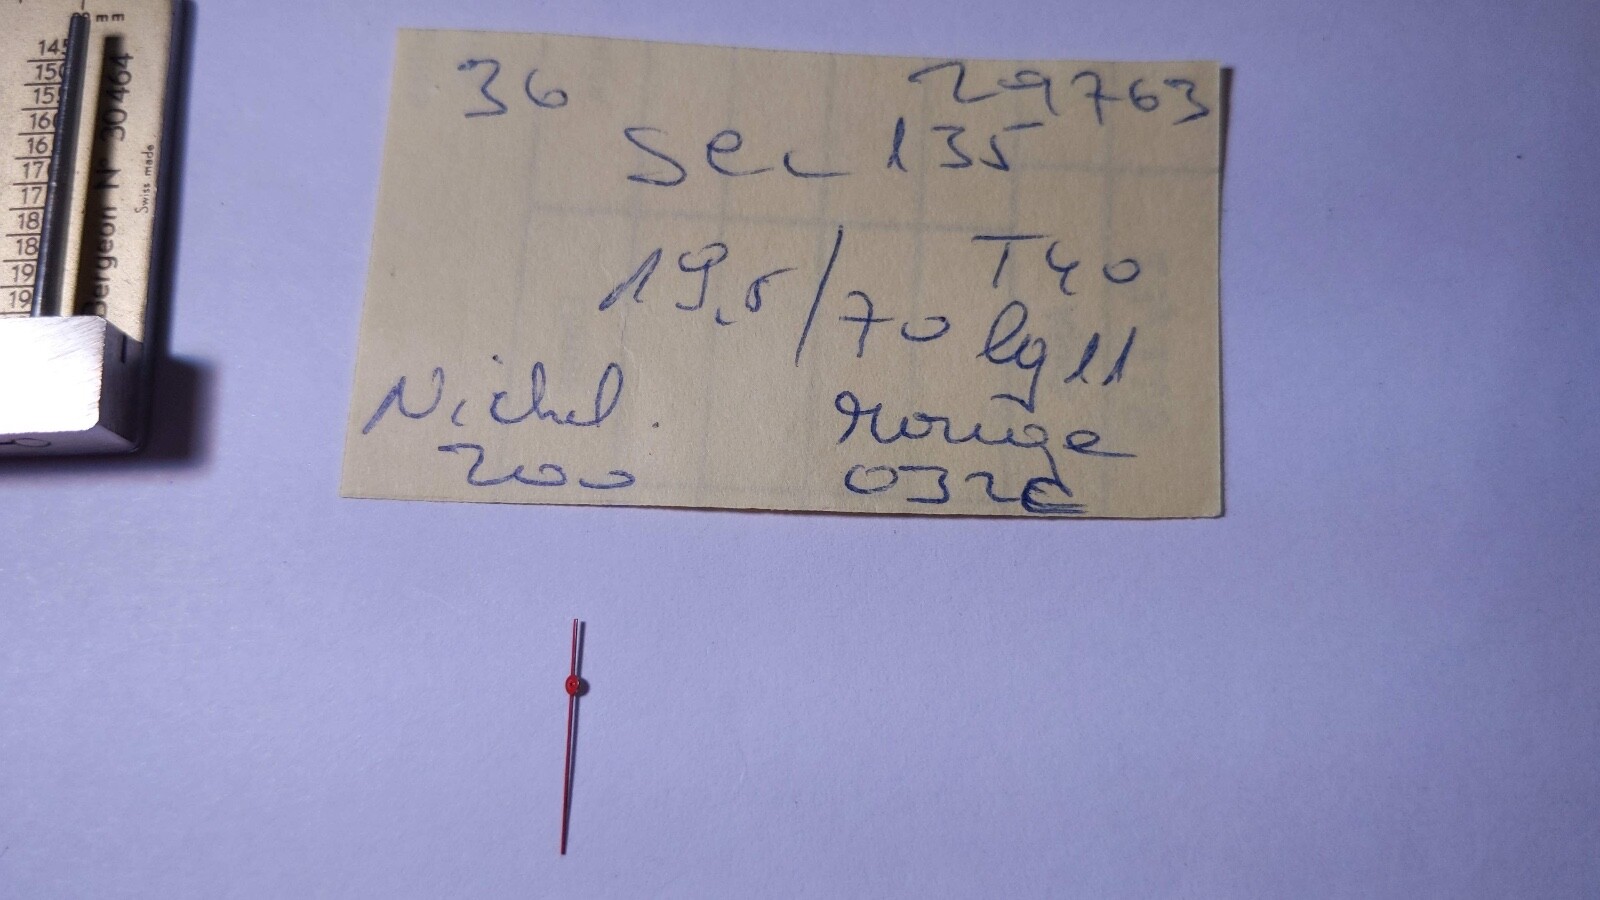 mm
145
150
155
160
16
170
17
18
18
19
19
Bergeon N° 30464
Swiss made
36 29763
Sec 135
19,5/70 T40
lg 11
Nickel. rouge
200 032€